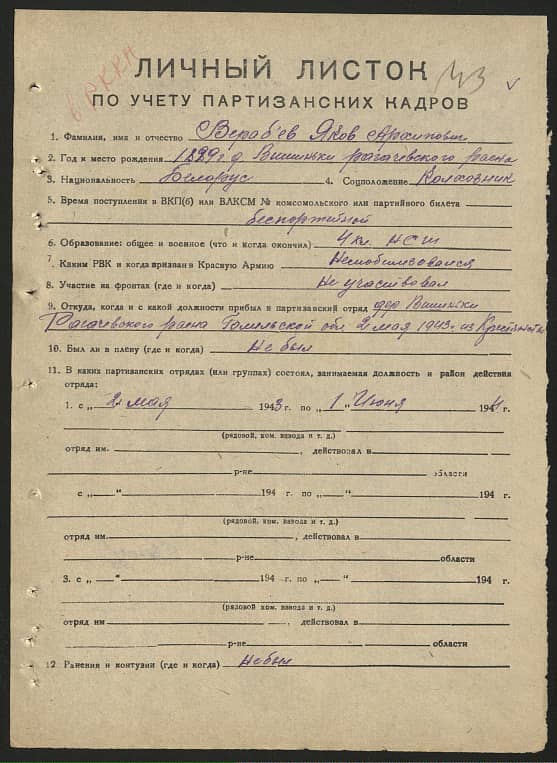 в РККА
43
ЛИЧНЫЙ ЛИСТОК
ПО УЧЕТУ ПАРТИЗАНСКИХ КАДРОВ
1. Фамилия, имя и отчество Вераб'ев Яков
2. Год и место рождения 1899 г д. Вишинки рагачевского раена
3. Национальность Белорус 4. Соцположение Колхозник
5. Время поступления в ВКП(б) или ВЛКСМ № комсомольского или партийного билета
беспортейной
6. Образование: общее и военное (что и когда окончил) 4 кл. НСШ
7. Каким РВК и когда призван в Красную Армию Немобилизовался
8. Участие на фронтах (где и когда) Не участвовал
9. Откуда, когда и с какой должности прибыл в партизанский отряд дер Вишинки
Рагачевского раена Гомельской обл. 2 мая 1943 г. из
10. Был ли в плену (где и когда) Не был
11. В каких партизанских отрядах (или группах) состоял, занимаемая должность и район действия
отряда:
1. с „2 мая 1943 г. по „1" Июня 1944 г.
(рядовой, ком. взвода и т. д.)
отряд им. , действовал в
р-не области
с „ " 194 г. по „ " 194 г.
(рядовой, ком. взвода и т. д.)
отряд им. , действовал в
р-не области
3. с „ " 194 г. по „ " 194 г.
(рядовой ком. взвода и т. д.)
отряд им , действовал в
р-не области
12 Ранения и контузии (где и когда) Небыл